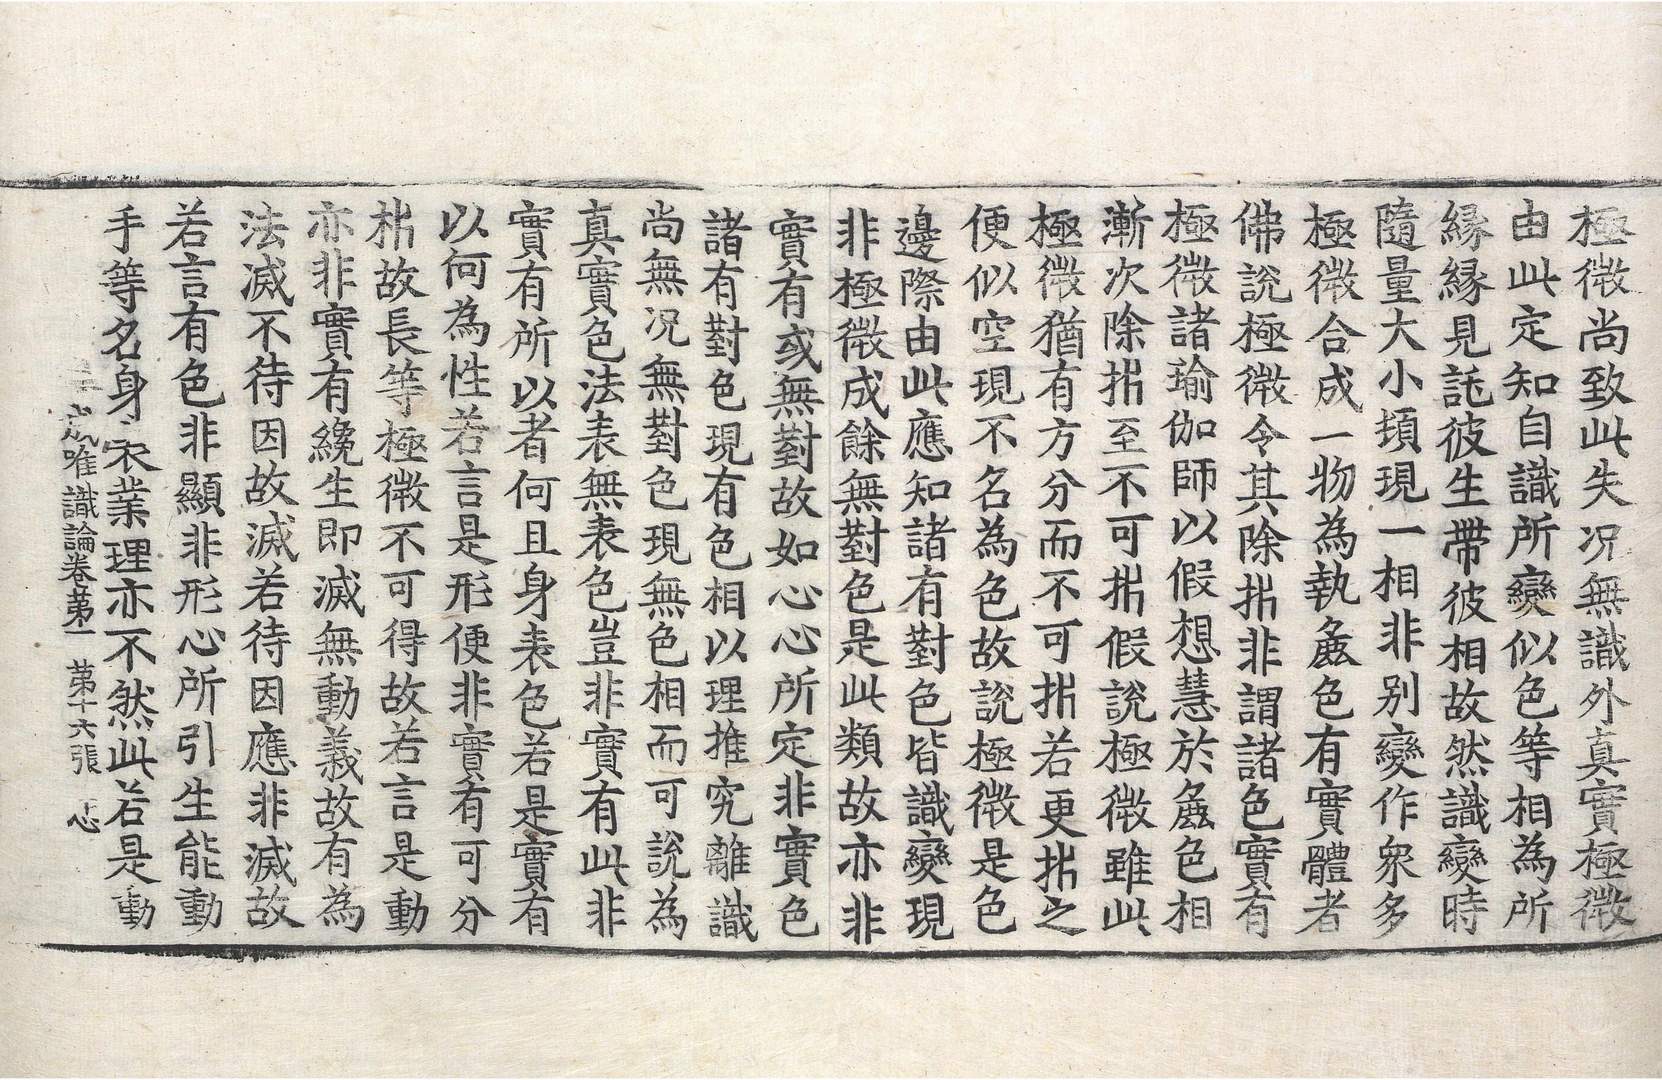 極微尚致此失况無識外真實極微
由此定知自識所變似色等相為所
緣緣見託彼生帶彼相故然識變時
隨量大小頓現一相非別變作衆多
極微合成一物為執麁色有實體者
佛說極微令其除析非謂諸色實有
極微諸瑜伽師以假想慧於麁色相
漸次除析至不可析假說極微雖此
極微猶有方分而不可析若更析之
便似空現不名為色故說極微是色
邊際由此應知諸有對色皆識變現
非極微成餘無對色是此類故亦非
實有或無對故如心心所定非實色
諸有對色現有色相以理推究離識
尚無况無對色現無色相而可說為
真實色法表無表色豈非實有此非
實有所以者何且身表色若是實有
以何為性若言是形便非實有可分
析故長等極微不可得故若言是動
亦非實有纔生即滅無動義故有為
法滅不待因故滅若待因應非滅故
若言有色非顯非形心所引生能動
手等名身表業理亦不然此若是動
成唯識論卷第一 第十六張